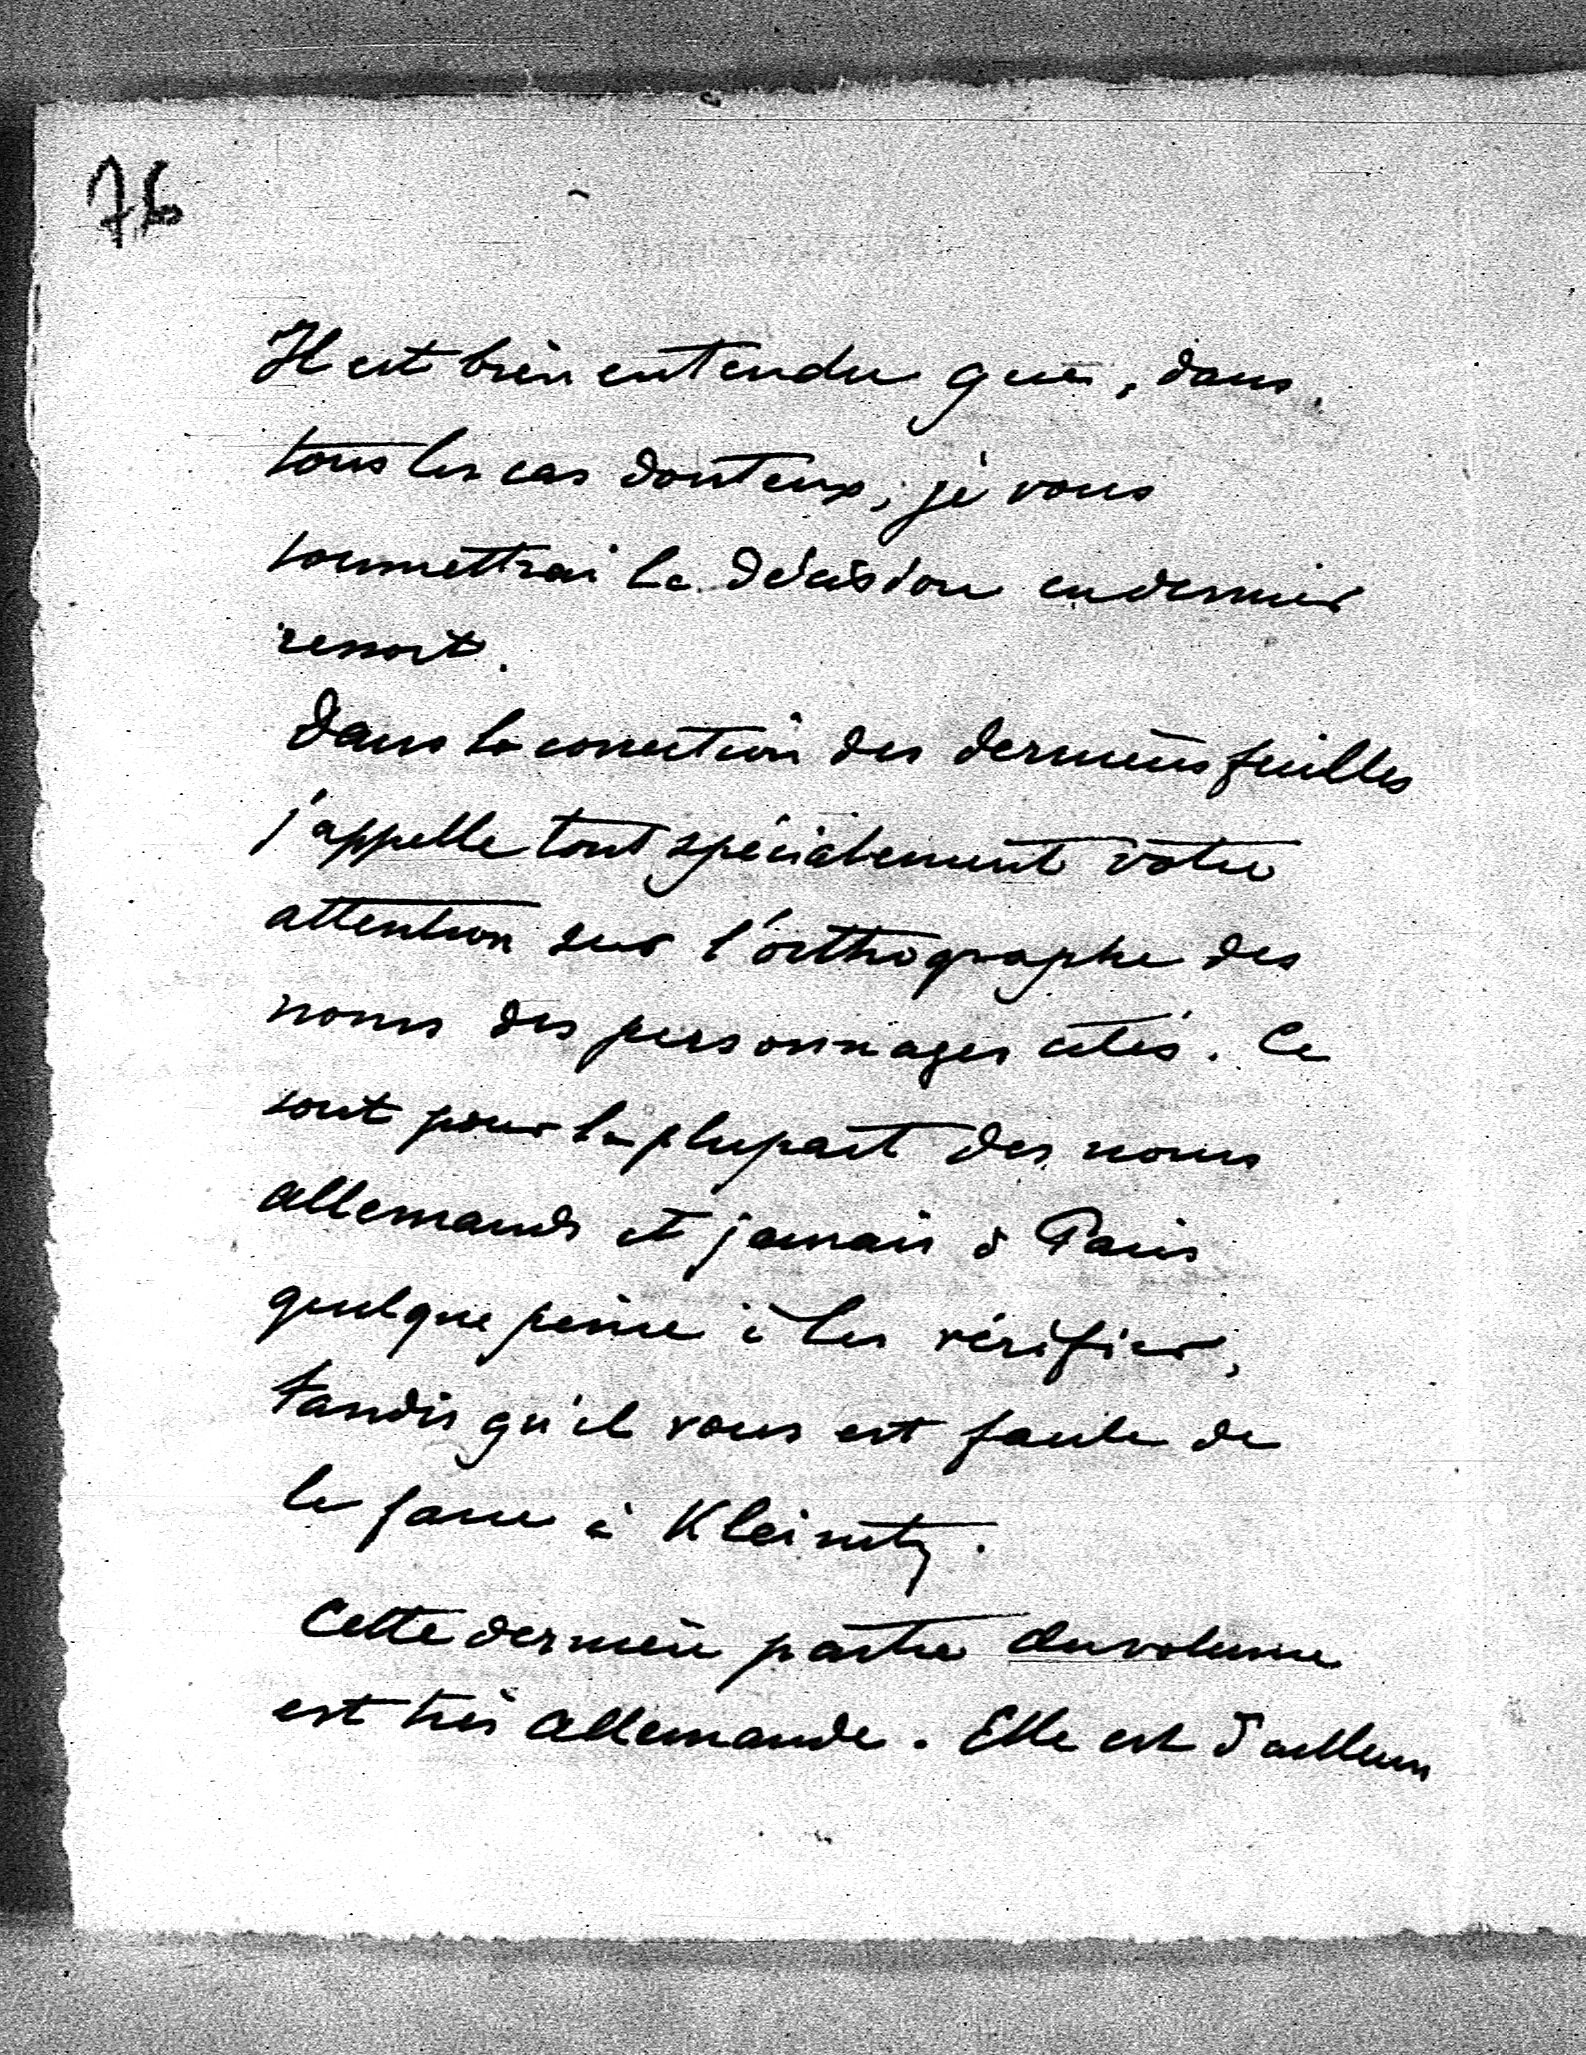 76
Il est bien entendu que, dans
tous les cas douteux, je vous
soumettrai la décision en dernier
ressort.
Dans la correction des dernières feuilles
j'appelle tout spécialement votre
attention sur l'orthographe des
noms des personnages cités. Ce
sont pour la plupart des noms
allemands et j'aurais à Paris
quelque peine à les vérifier,
tandis qu'il vous est facile de
le faire à Kleinitz.
Cette dernière partie du volume
est très allemande. Elle est d'ailleurs